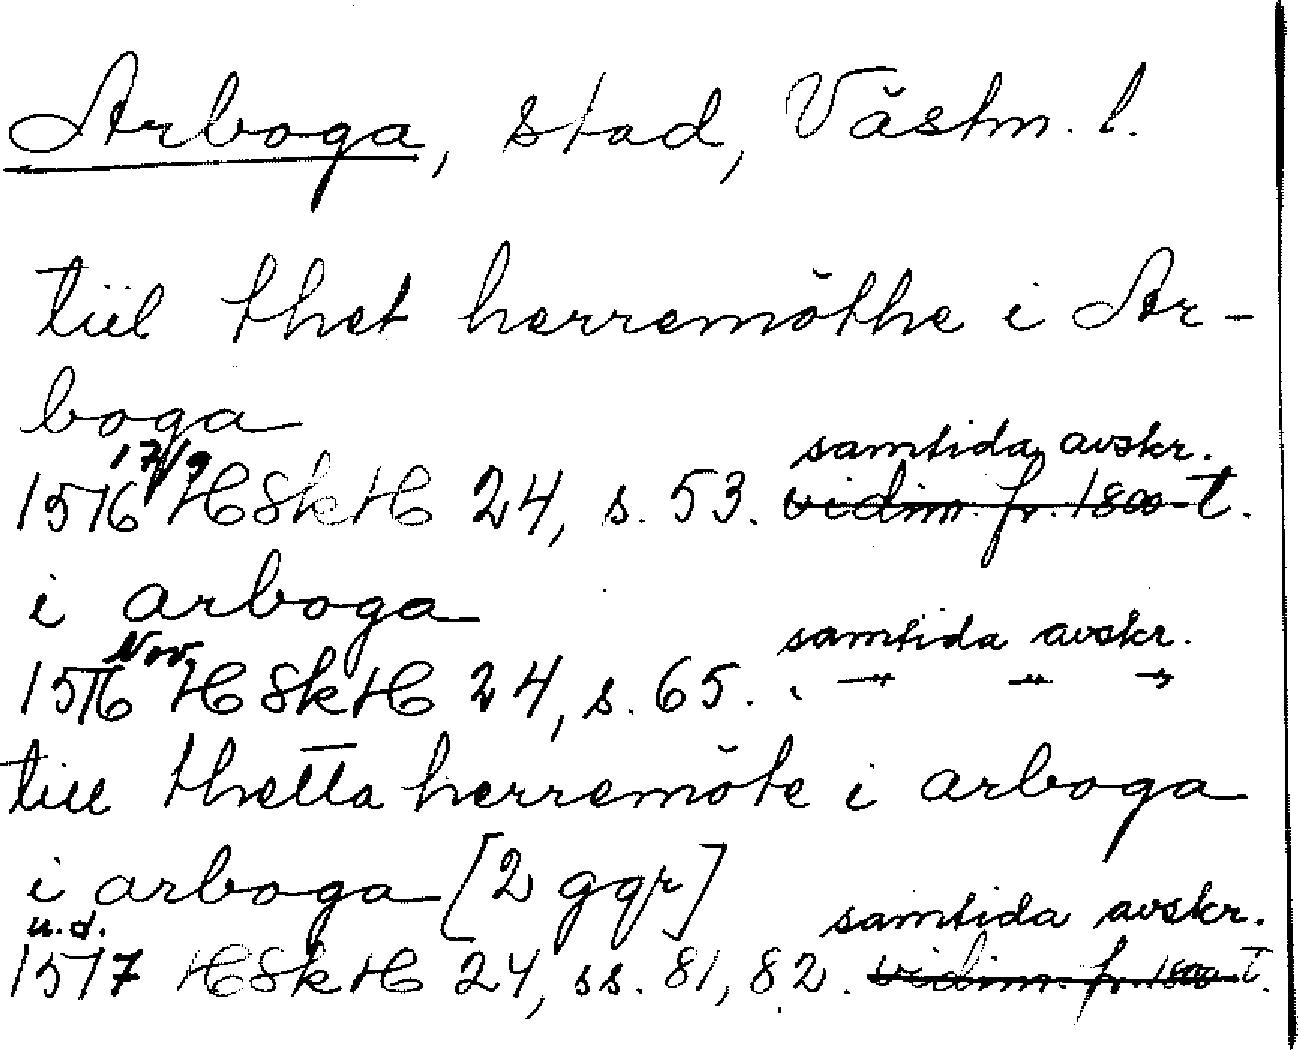 Arboga, stad, Västm. l.
tiil thet herremöthe i Ar-
boga
17/9 samtida avskr.
1516 HSkH 24, s. 53. vidim. fr. 1800-t.
i arboga
Nov. samtida avskr.
1516 HSkH 24, s. 65. -"- -"- -"-
till thetta herremöte i arboga
i arboga [2 ggr]
u.d. samtida avskr.
1517 HSkH 24, ss. 81, 82. vidim. fr. 1800-t.